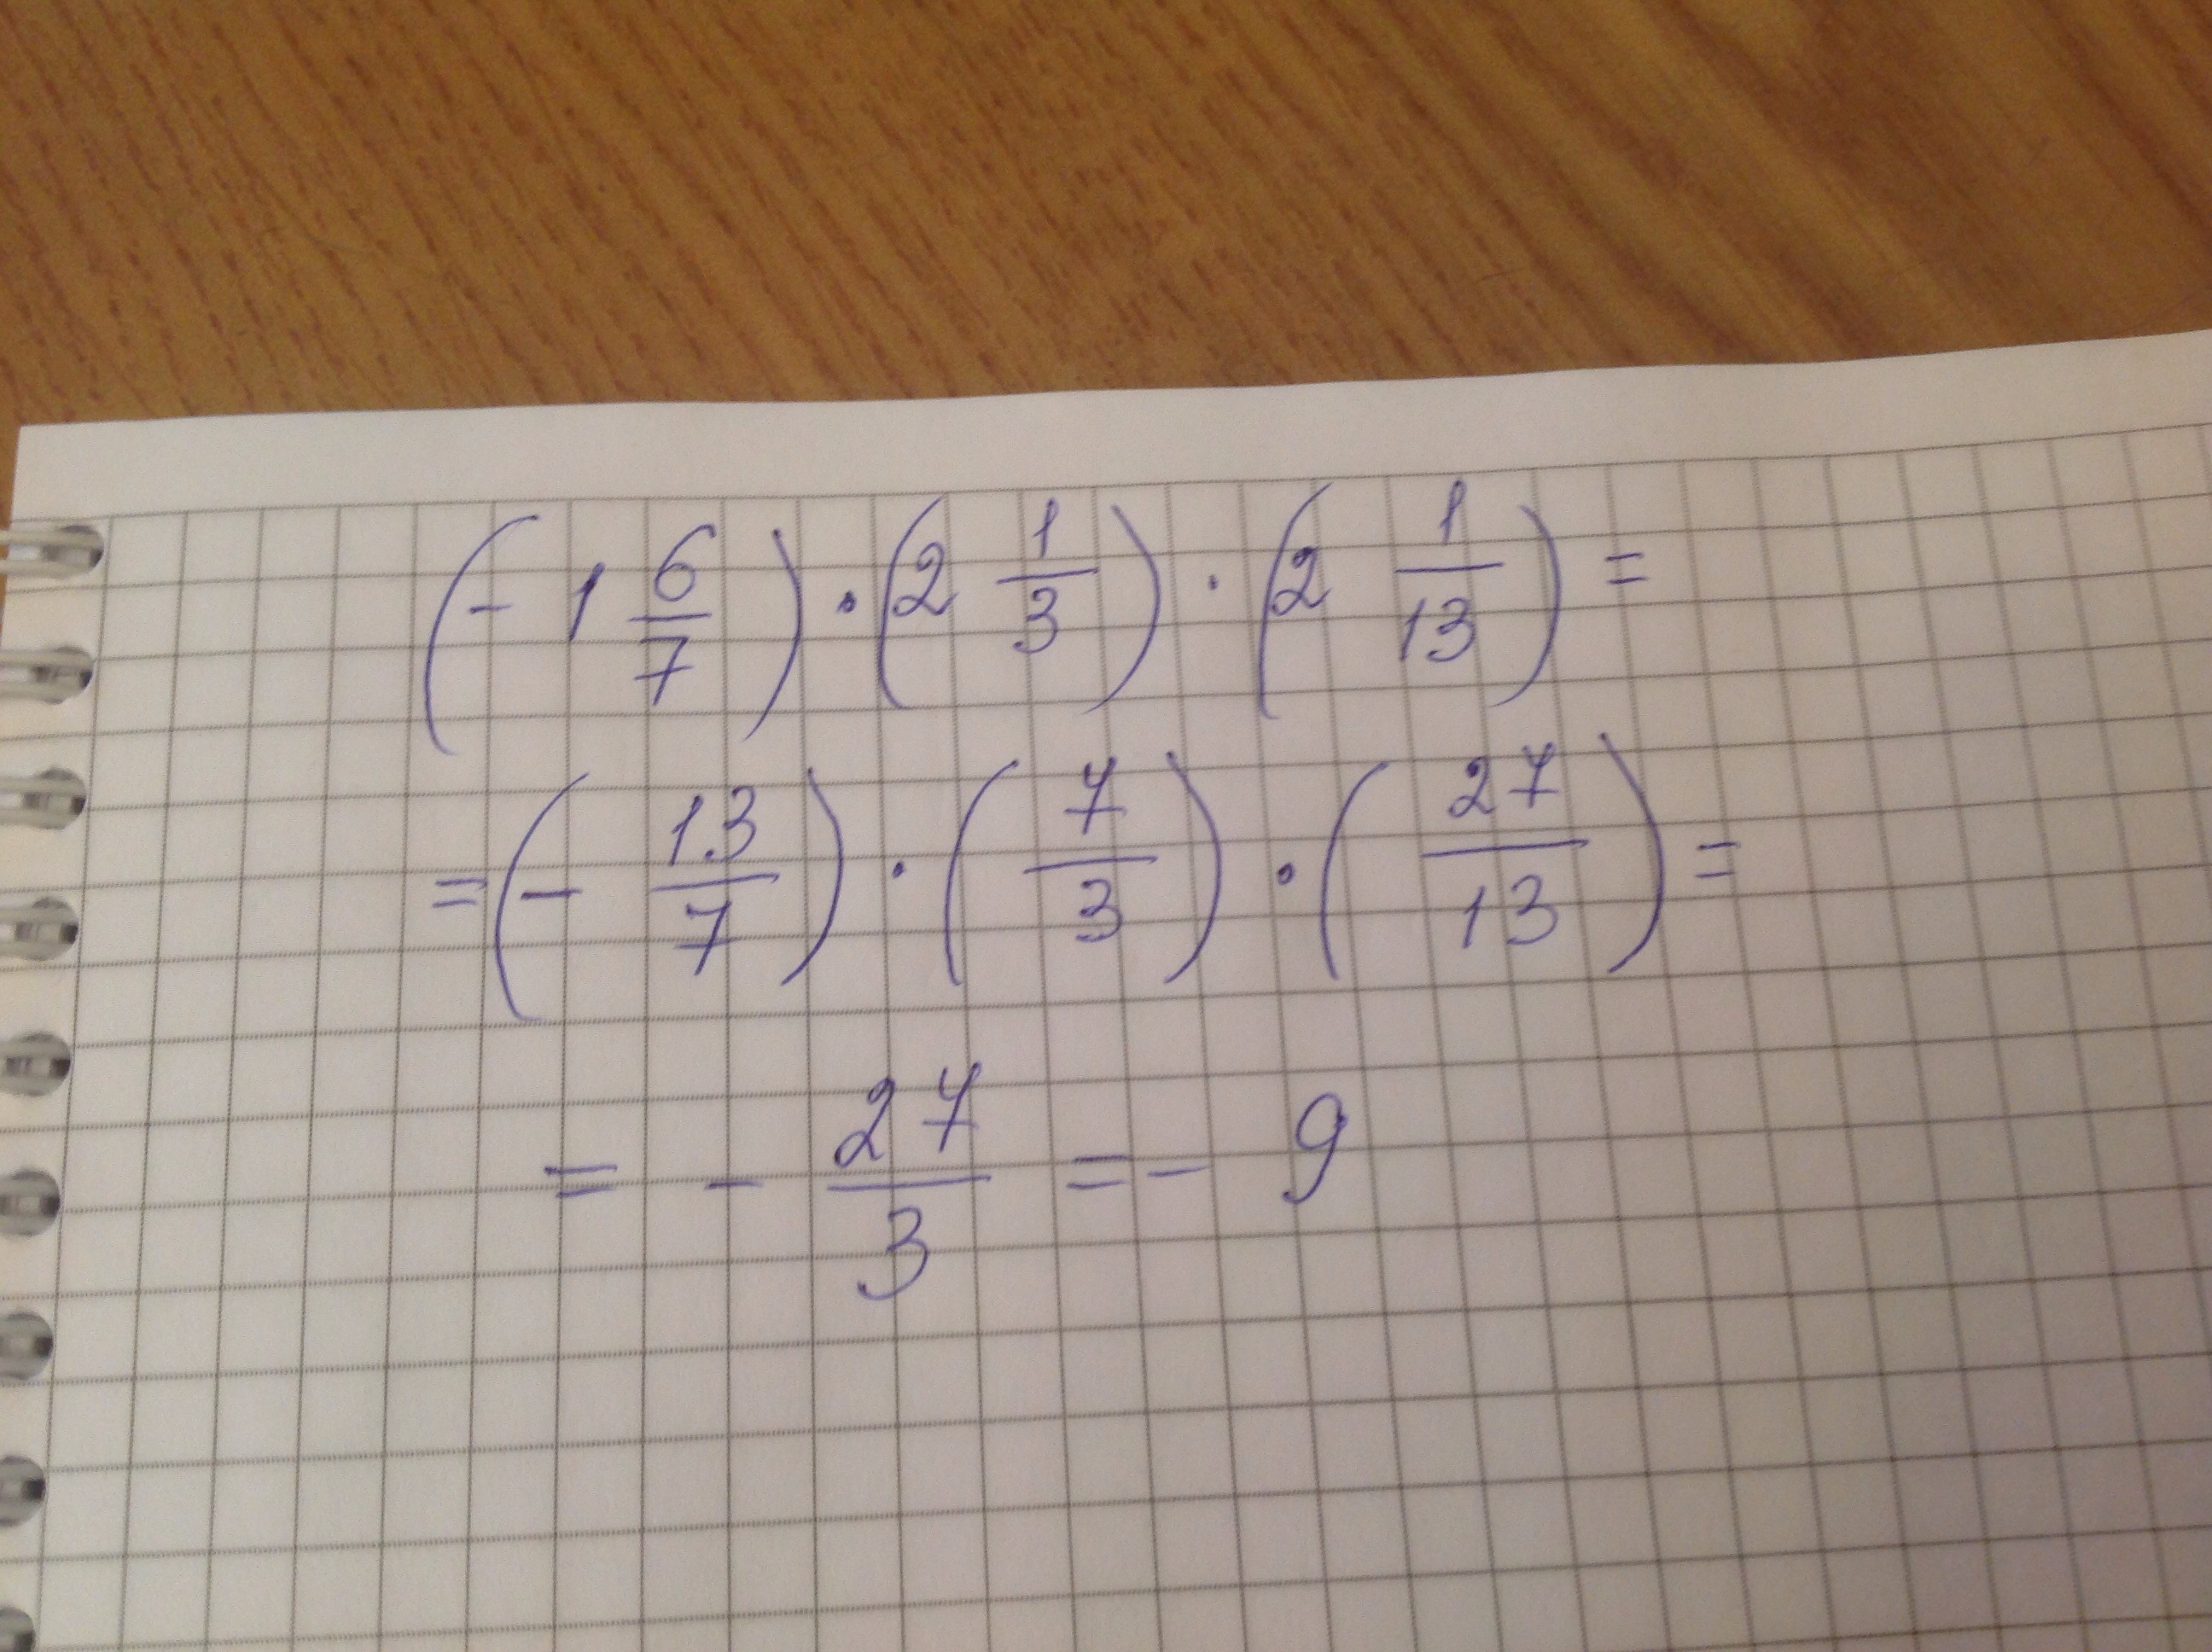 (- 1 6/7) · (2 1/3) · (2 1/13) =
= (- 13/7) · (7/3) · (27/13) =
= - 27/3 = - 9